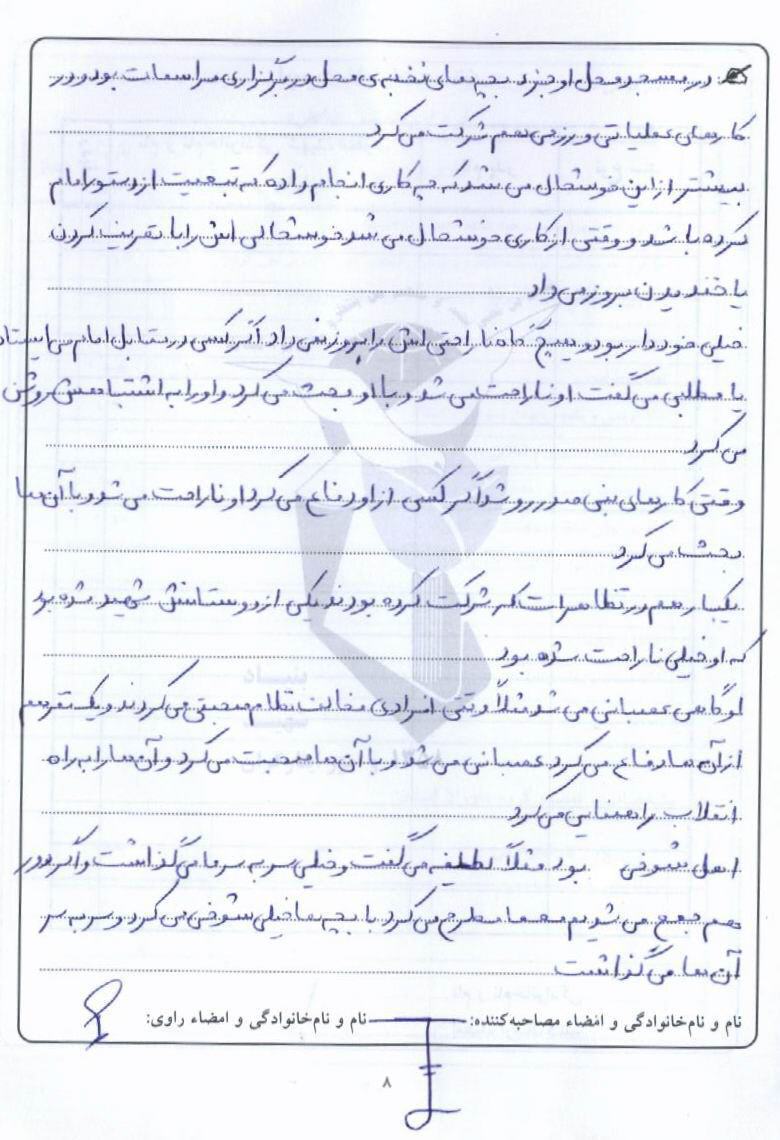 در مسجد محل او جزء بچه های نخبه ی محل در برگزاری مراسمات بود و در
کارهای عملیاتی و رزمی هم شرکت می کرد
بیشتر از این خوشحال می شد که چه کاری انجام داده که تبعیت از دستور امام
کرده باشد و وقتی از کاری خوشحال می شد خوشحالی اش را با تعریف کردن
یا خندیدن بروز می داد
خیلی خوددار بود و هیچ گاه ناراحتی اش را بروز نمی داد اگر کسی در مقابل امام می ایستاد
یا مطلبی می گفت او ناراحت می شد و با او بحث می کرد و او را به اشتباهش روشن
می کرد
وقتی کارهای بنی صدر رو شد اگر کسی از او دفاع می کرد او ناراحت می شد و با آن ها
بحث می کرد
یکبار هم در تظاهرات که شرکت کرده بودند یکی از دوستانش شهید شده بود
که او خیلی ناراحت شده بود
او گاهی عصبانی می شد مثلاً وقتی افرادی مخالف نظام صحبتی می کردند و یک نفر هم
از آن ها دفاع می کرد عصبانی می شد و با آن ها صحبت می کرد و آن ها را به راه
انقلاب راهنمایی می کرد
اهل شوخی بود مثلاً لطیفه می گفت و خیلی سر به سر ما می گذاشت و اگر دور
هم جمع می شدیم معما مطرح می کرد با بچه ها خیلی شوخی می کرد و سر به سر
آن ها می گذاشت
نام و نام‌خانوادگی و امضاء مصاحبه‌کننده: نام و نام‌خانوادگی و امضاء راوی:
۸